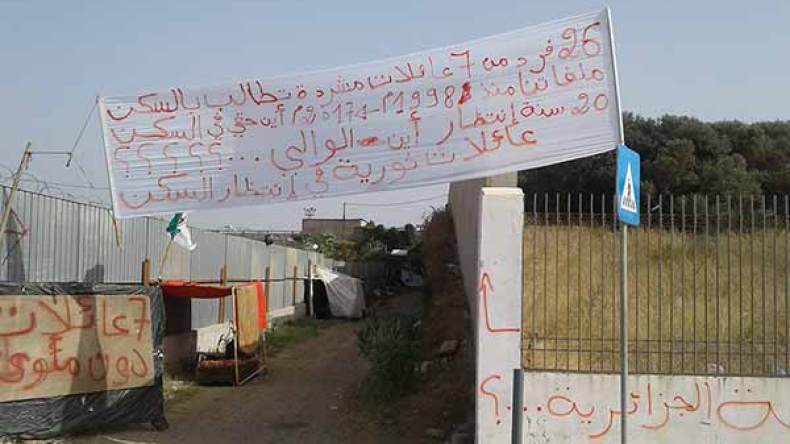 26 فرد من 7 عائلات مشردة تطالب بالسكن
ملفاتنا منذ 1998م-2017م أين حقي في السكن
20 سنة إنتظار أين الوالي ...؟؟؟؟؟
عائلات ثورية في إنتظار السكن
7 عائلات
دون مأوى
الجزائرية...؟